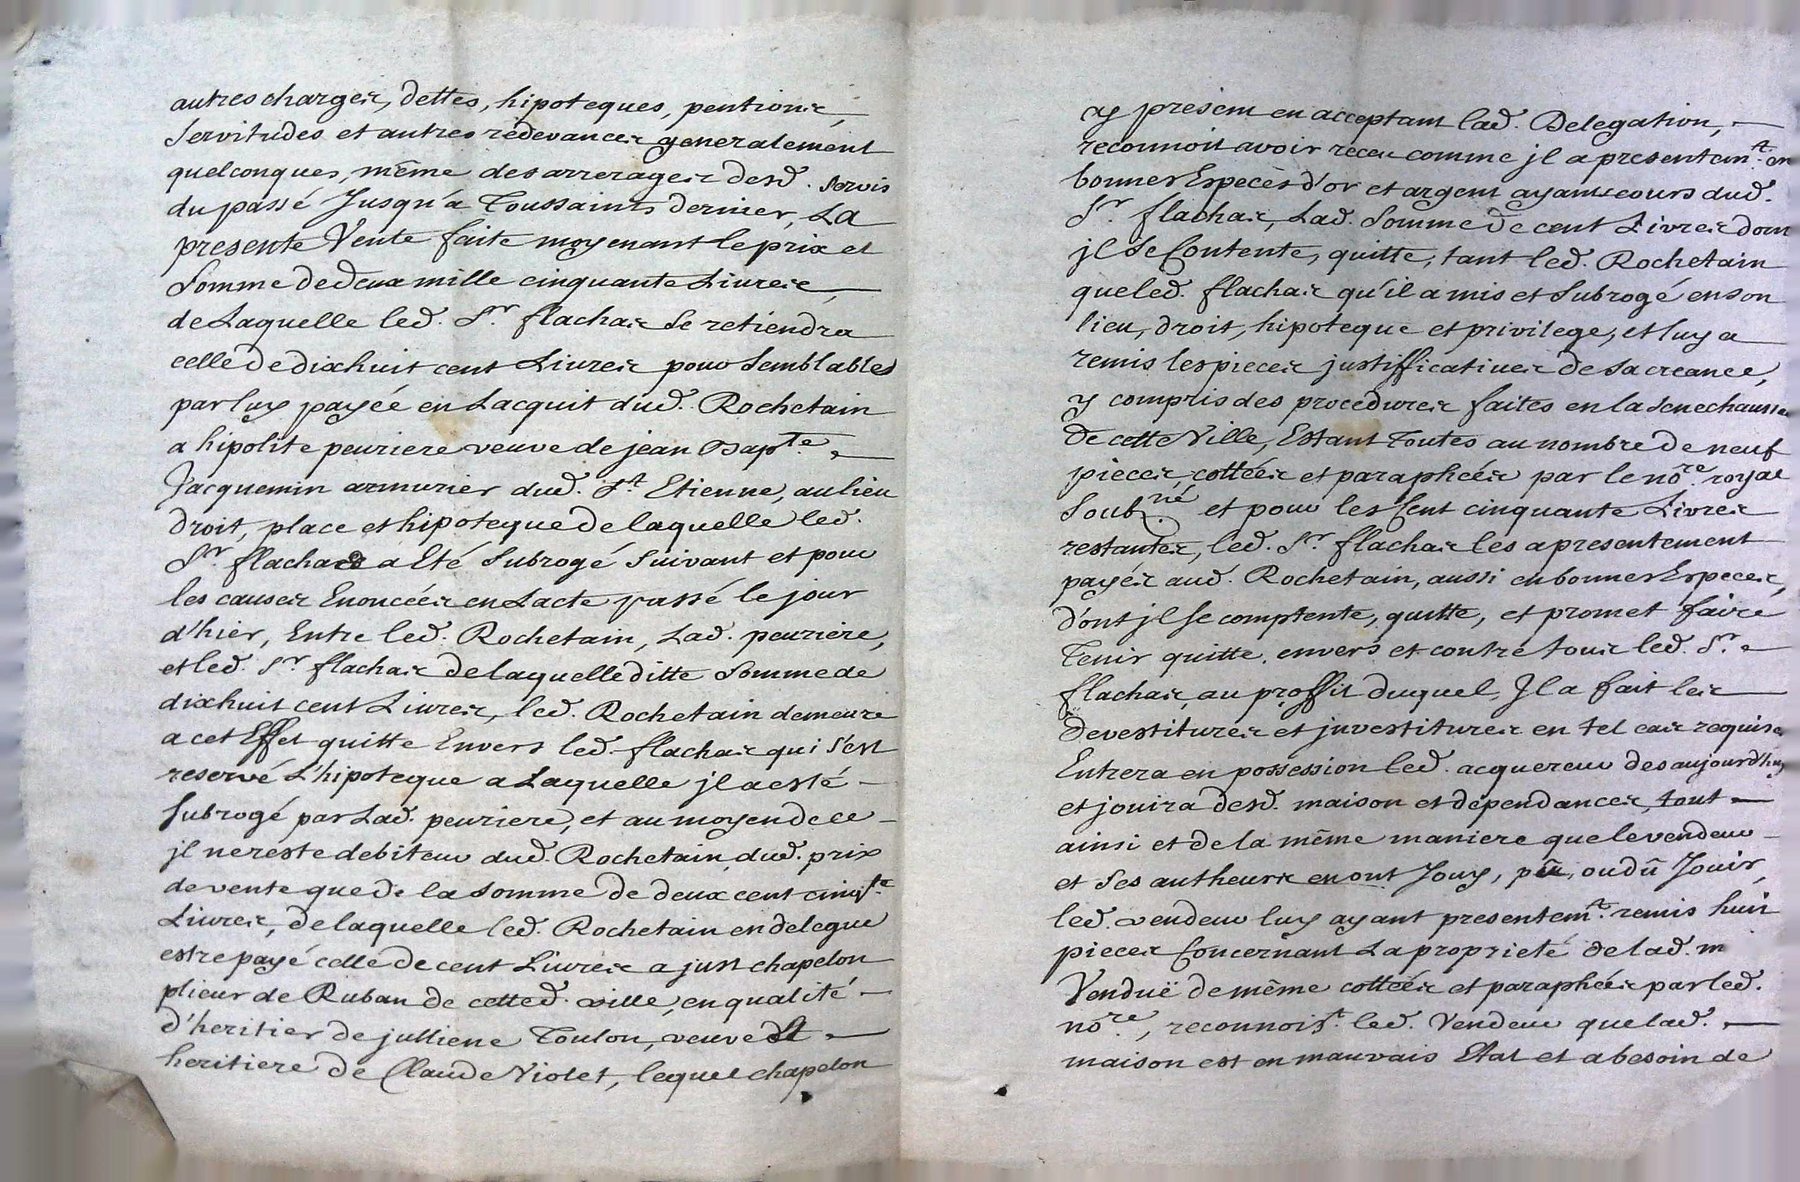 autres charges, dettes, hipoteques, pentions,
Servitudes et autres redevances generalement
quelconques, même des arrerages desd. servis
du passé Jusqu'a Toussaints dernier, La
presente Vente faite moyenant le prix et
Somme de deux mille cinquante Livres,
de Laquelle led. Sr. flachas Se retiendra
celle de dixhuit cent Livres pour Semblables
par luy payée en Lacquit dud. Rochetain
a hipolite peuriere veuve de jean Bapte.
Jacquemin armurier dud. St Etienne, au lieu
droit, place et hipoteque de laquelle led.
Sr. flachas a Eté Subrogé Suivant et pour
les causes Enoncées en Lacte passé le jour
d'hier, Entre led. Rochetain, Lad. peuriere,
et led. Sr. flachas de laquelle ditte Somme de
dixhuit cent Livres, led. Rochetain demeure
a cet Effet quitte Envers led. flachas qui s'est
reservé L'hipoteque a Laquelle jl a esté
Subrogé par Lad. peuriere, et au moyen de ce
jl ne reste debiteur dud. Rochetain dud. prix
de vente que de la Somme de deux cent cinqte
Livres, de laquelle led. Rochetain en delegue
estre payé celle de cent Livres a just chapelon
plieur de Ruban de cetted. ville, en qualité
d'heritier de julliene Toulon, veuve et
heritiere de Claude Violet, lequel chapelon
y present en acceptant lad. Delegation,
reconnoit avoir receu comme jl a presentemt. en
bonnes Especes d'or et argent ayant cours dud.
Sr. flachas, Lad. Somme de cent Livres dont
jl Se Contente, quitte, tant led. Rochetain
que led. flachas qu'il a mis et Subrogé en son
lieu, droit, hipoteque et privilege, et luy a
remis les pieces justifficatives de sa creance,
y compris des procedures faites en la Senechaussée
de cette Ville, Estant Toutes au nombre de neuf
pieces, cottées et paraphées par le nore. royal
Soubné. et pour les Cent cinquante Livres
restantes, led. Sr. flachas les a presentement
payés aud. Rochetain, aussi en bonnes Especes,
d'ont jl se comptente, quitte, et promet faire
Tenir quitte, envers et contre tous led. Sr.
flachas, au proffit duquel, Jl a fait les
devestitures et jnvestitures en tel cas requises
Entrera en possession led. acquereur des aujourdhuy
et jouira desd. maison et dépendances, tout
ainsi et de la même maniere que le vendeur
et Ses autheurs en ont Jouy, pû, ou dû Jouir,
led. vendeur luy ayant presentemt. remis huit
pieces Concernant La proprieté de lad. m
Venduë de même cottées et paraphées par led.
nore, reconnoist. led. Vendeur que lad.
maison est en mauvais Etat et a besoin de